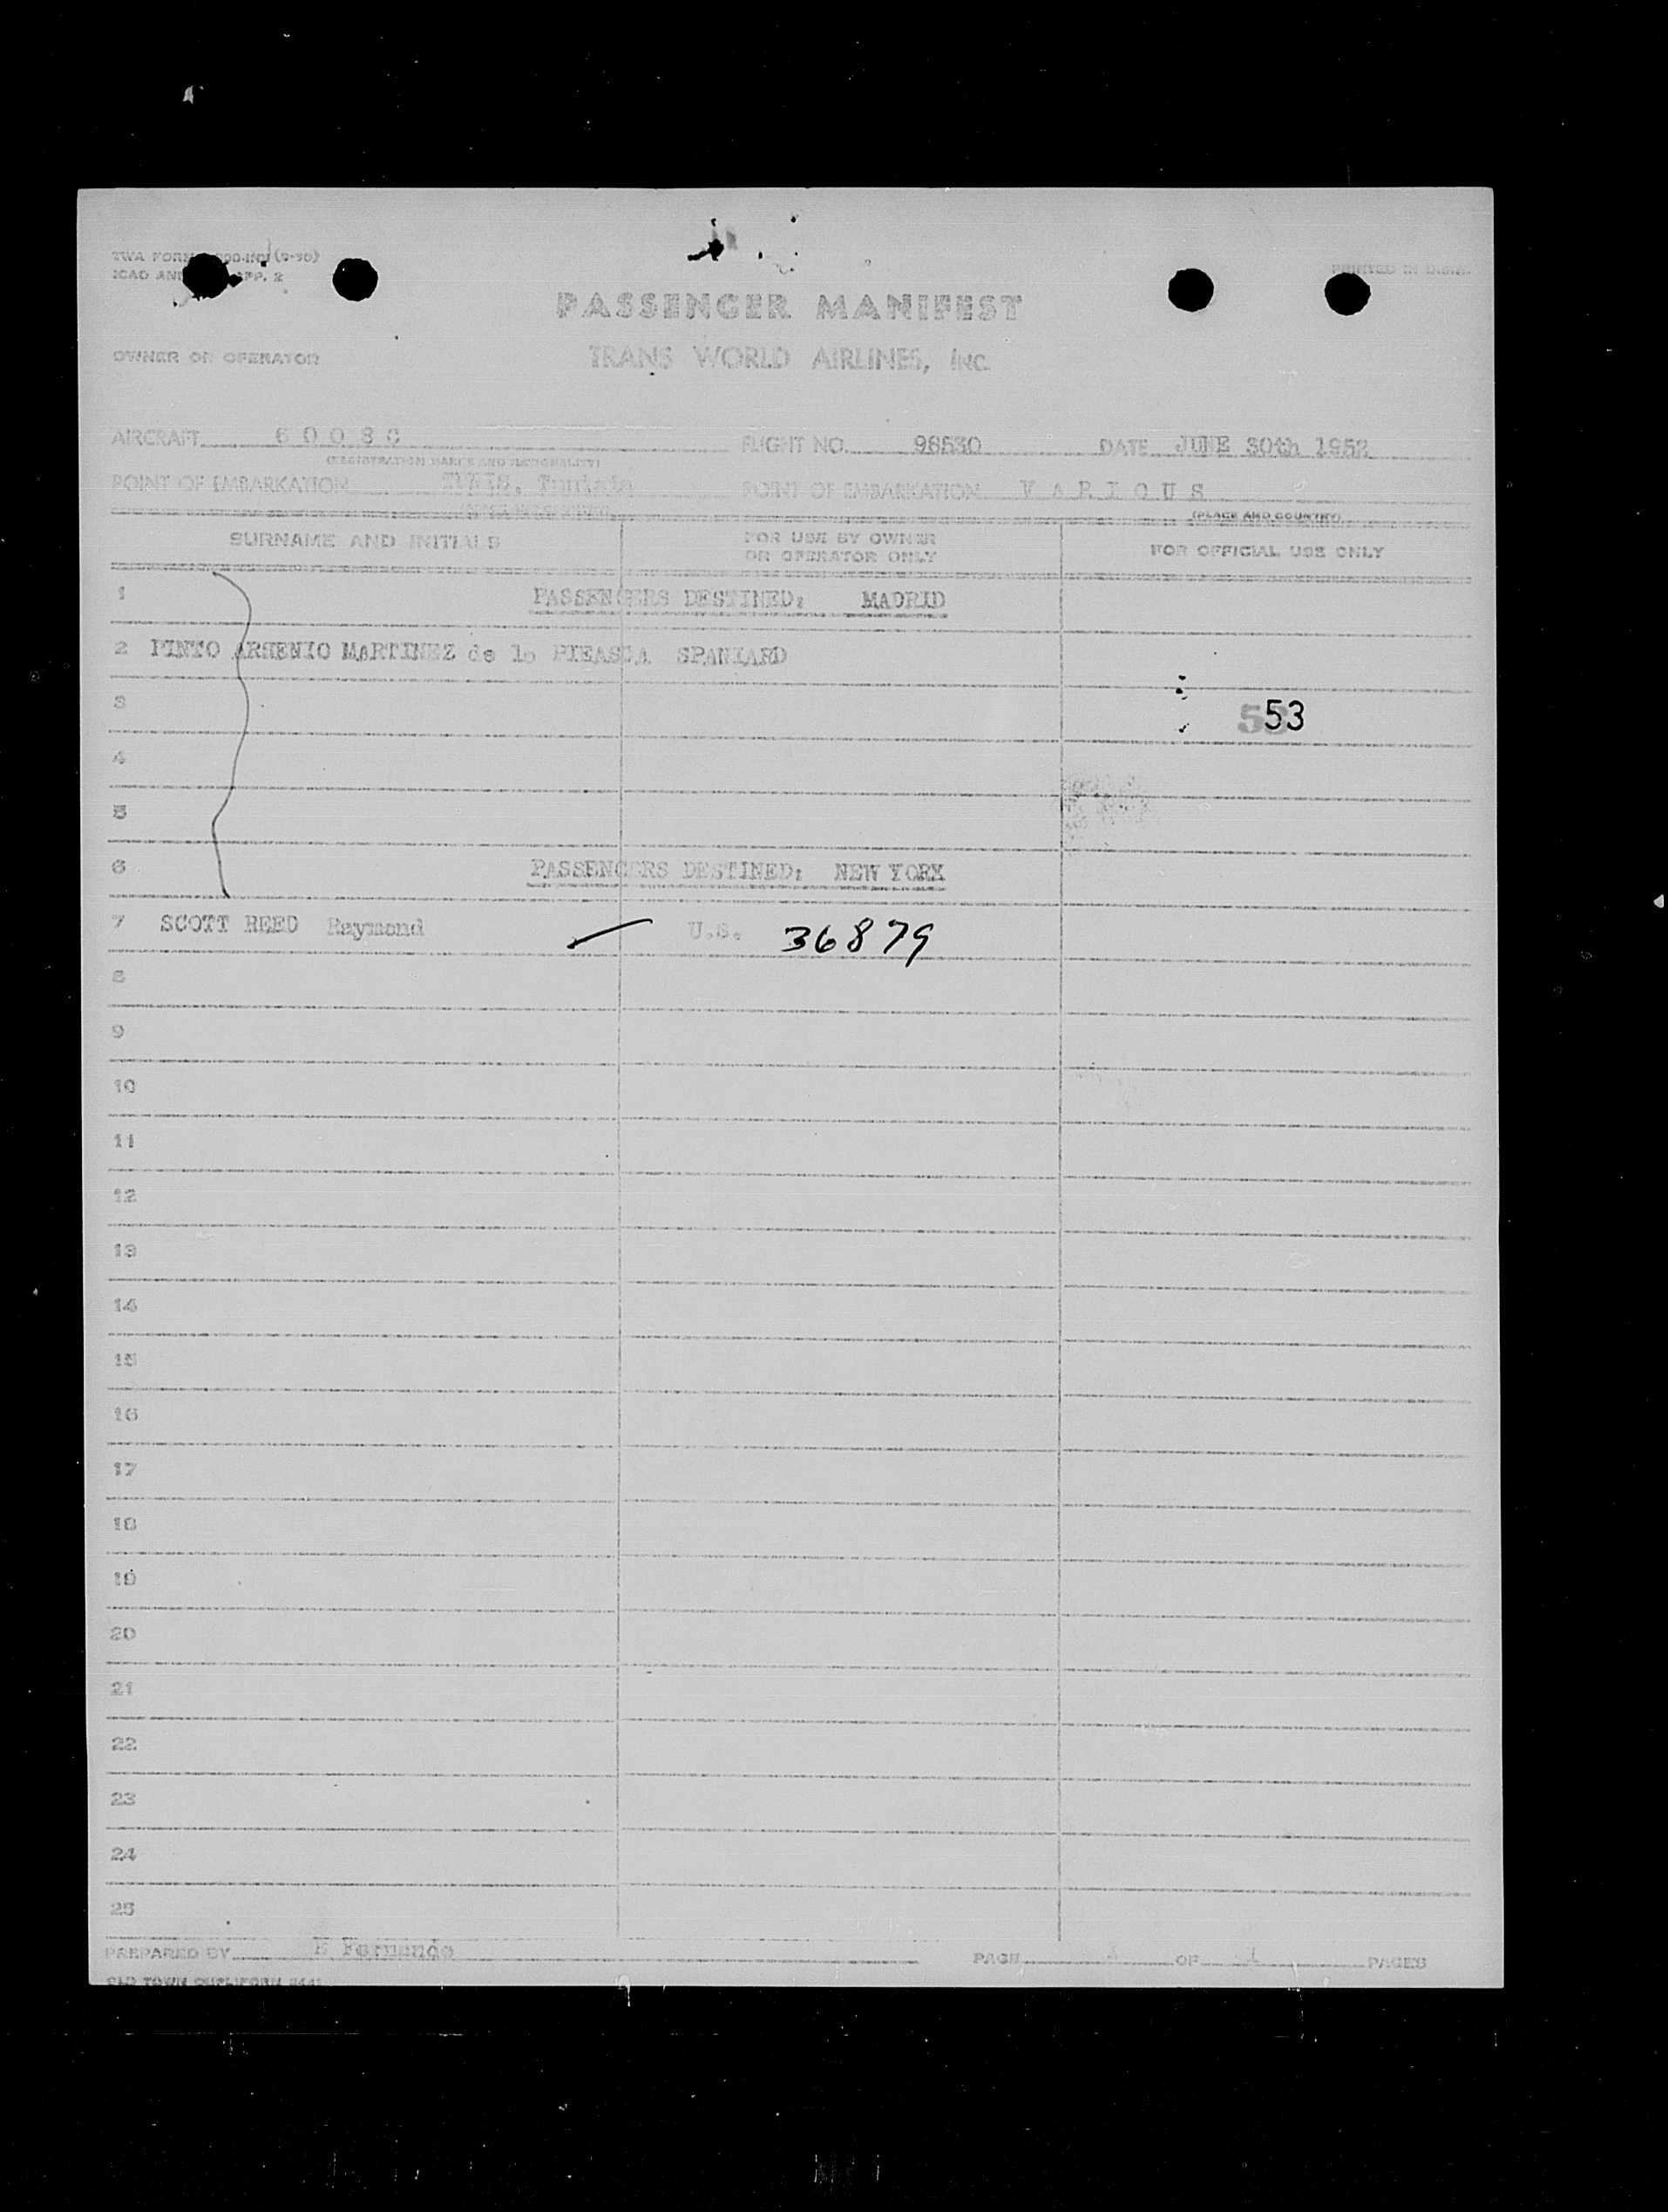 TWA FORM
ICAO APP. 2
PRINTED IN U.S.A.
PASSENGER MANIFEST
OWNER OR OPERATOR TRANS WORLD AIRLINES, INC.
AIRCRAFT FLIGHT NO. 98530 DATE JUNE 30th 1952
(REGISTRATION MARKS AND NATIONALITY)
POINT OF EMBARKATION TUNIS, Tunisia POINT OF EMBARKATION V A R I O U S
(PLACE AND COUNTRY)
SURNAME AND INITIALS FOR USE BY OWNER OR OPERATOR ONLY FOR OFFICIAL USE ONLY
1 PASSENGERS DESTINED: MADRID
2 PINTO ARSENIO MARTINEZ de SPANIARD
3 53
4
5
6 PASSENGERS DESTINED: NEW YORK
7 SCOTT REED Raymond U.S. 36879
8
9
10
11
12
13
14
15
16
17
18
19
20
21
22
23
24
25
PREPARED BY PAGE OF 1 PAGES
OLD TOWN DUPLIFORM